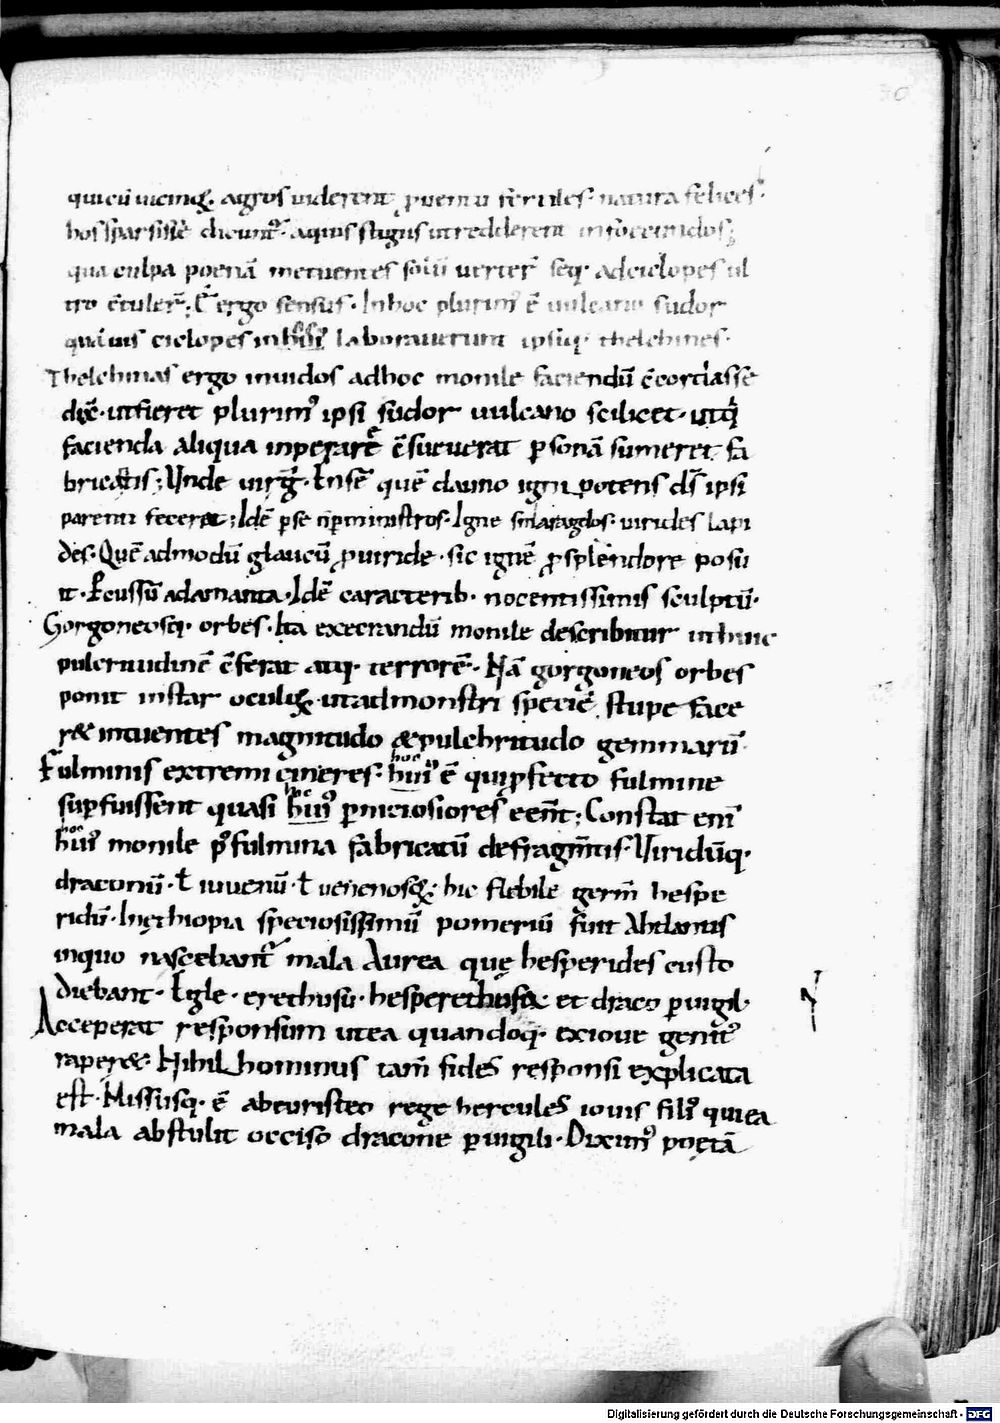 30
quicū uicinoꝝ agros uiderent ꝓuentu fertiles natura felices·
hos sparsisse dicunt᷑· aquis stigiis ut redderent infoecundos;
qua culpa poenā metuentes solū uerter̄ seq· ad ciclopes ul
tro ēculer̄; Ē ergo sensus· In hoc plurim᷒ ē uulcani sudor
quāuis ciclopes in hui᷒ laborauerunt ipsiq· thelchines·
Thelchinas ergo inuidos ad hoc monile faciendū ēcortasse
dix̄· ut fieret plurim᷒ ipsi sudor uulcano scilicet· ut q̄
facienda aliqua inperare ēsueuerat ꝑsonā sumeret fa
bricātis; Vnde uirḡ· Ensē quē dauno igni potens ds̄ ipsi
parenti fecerat; Idē ꝑ se n̄ ꝑ ministros· Igne smaragdos· uirides lapi
des· Quēadmodū glaucū ꝓ uiride· sic ignē ꝓ splendore posu
it· Ꝑcussū adamanta· Idē caracterib· nocentissimis sculptū·
Gorgoneosq· orbes· Ita execrandū monile describitur ut hinc
pulcritudinē ēferat atq· terrorē· Nā gorgoneos orbes
ponit instar oculoꝝ ut ad monstri speciē stupe face
r& intuentes magnitudo &pulchritudo gemmarū·
Fulminis extremi cineres· hoc hui᷒ ē qui ꝓfecto fulmine
suꝑfuissent quasi hoc hui᷒ ꝑniciosiores eēnt; Constat enī
hoc hui᷒ monile p᷒ fulmina fabricatū de fragm̄tis· Viridūq·
draconū· ł iuuenū· ł uenenosoꝝ; hic flebile germ̄ hespe
ridū· In ęthiopia speciosissimū pomeriū fuit Ahtlantis
in quo nascebant᷑ mala Aurea quę hesperides custo
diebant· Egle· erethusū· hesperethusa et draco ꝑuigil·
Acceperat responsum ut ea quandoq· ex ioue genit᷒
raper&· Nihil hominus tam̄ fides responsi explicata
est· Missusq· ē ab euristeo rege hercules iouis fili᷒ qui ea
mala abstulit occiso dracone ꝑuigili· Dixim᷒ poętā
Digitalisierung gefördert durch die Deutsche Forschungsgemeinschaft - DFG